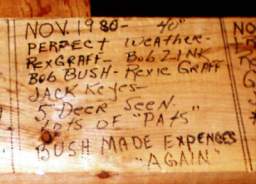 NOV. 1980- 40"
PERFECT Weather-
Rex GRAFT- Bob ZINK
Bob BUSH- Rexie GRAFT
JACK Keyes-
5 Deer Seen.
Lots OF "PATS"
BUSH MADE EXPENCES
"AGAIN"
NO